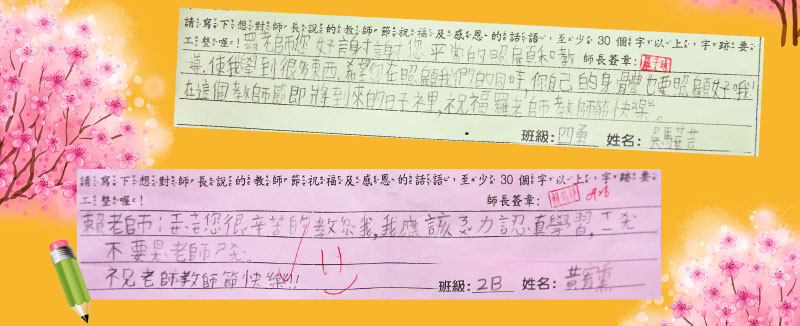 請寫下想對師長說的教師節祝福及感恩的話語，至少30個字以上，字跡要
工整喔！羅老師您好謝謝您平常的照顧和教 師長簽章：
導使我學到很多東西,希望你在照顧我們的同時,你自己的身體也要照顧好哦!
在這個教師節即將到來的日子裡,祝福羅老師教師節快樂。
班級：四勇 姓名：吳馬芸芸
請寫下想對師長說的教師節祝福及感恩的話語，至少30個字以上，字跡要
工整喔！ 師長簽章：
賴老師：您很辛苦的教我,我應該力認真學習,
不要老師
祝老師教師節快樂!!
班級：2B 姓名：黃宥薰